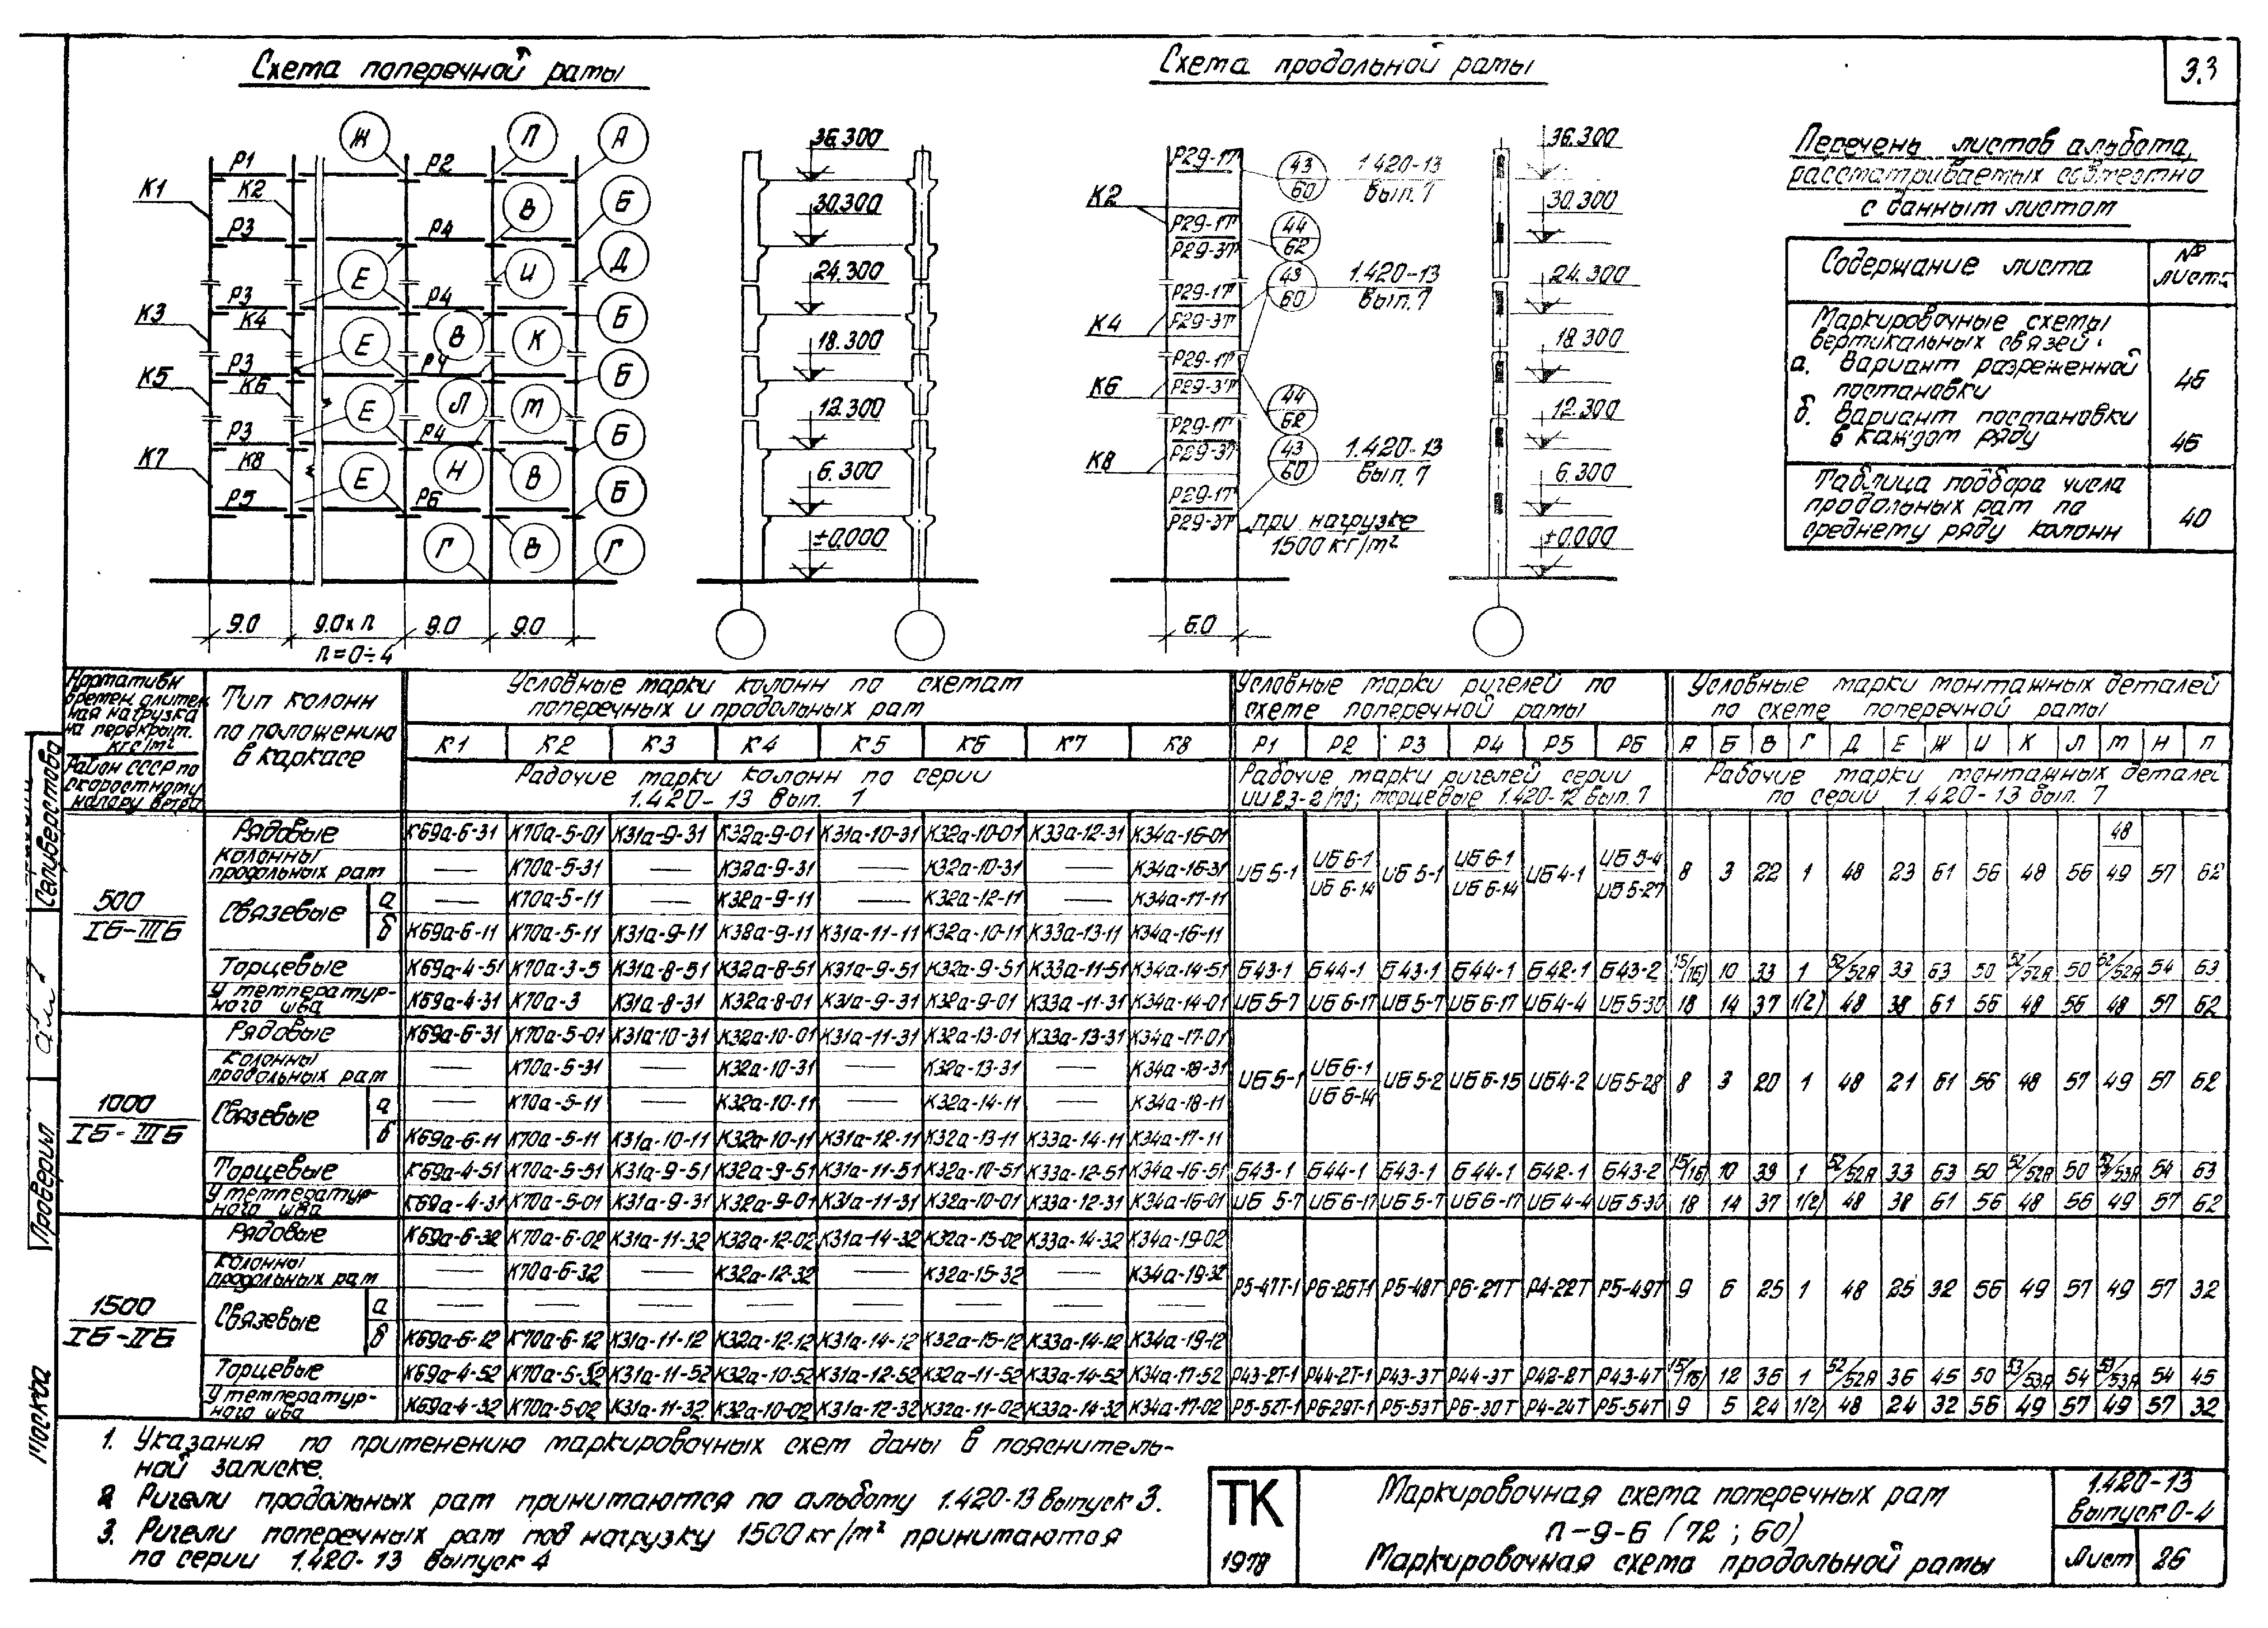 Схема поперечной рамы
Схема продольной рамы
3.3
Ж
П
А
Р1
Р2
К1
К2
В
Б
Р3
Р4
Е
И
Д
Р3
Р4
К3
К4
В
К
Б
Е
Р3
Р4
К5
К6
Е
Л
М
Б
Р3
Р4
К7
К8
Е
Н
В
Б
Б
Р5
Р6
Г
В
Г
9.0
9.0×п
9.0
9.0
п=0÷4
36.300
30.300
24.300
18.300
12.300
6.300
±0.000
Р29-1Т
43
60
1.420-13
вып.7
К2
Р29-1Т
Р29-3Т
44
62
43
60
1.420-13
вып.7
Р29-1Т
Р29-3Т
К4
Р29-1Т
Р29-3Т
К6
44
62
Р29-1Т
Р29-3Т
К8
43
60
1.420-13
вып.7
Р29-1Т
Р29-3Т
при нагрузке
1500 кг/м²
6.0
36.300
30.300
24.300
18.300
12.300
6.300
±0.000
Перечень листов альбома,
рассматриваемых совместно
с данным листом
Содержание листа
№
листа
Маркировочные схемы
вертикальных связей:
а. Вариант разреженной
постановки
45
б. Вариант постановки
в каждом ряду
46
Таблица подбора числа
продольных рам по
среднему ряду колонн
40
Нормативн.
времен. длитель
ная нагрузка
на перекрыт.
кгс/м²
Район СССР по
скоростному
напору ветра
Тип колонн
по положению
в каркасе
Условные марки колонн по схемам
поперечных и продольных рам
Условные марки ригелей по
схеме поперечной рамы
Условные марки монтажных деталей
по схеме поперечной рамы
К1 К2 К3 К4 К5 К6 К7 К8 Р1 Р2 Р3 Р4 Р5 Р6 А Б В Г Д Е Ж И К Л М Н П
Рабочие марки колонн по серии
1.420-13 вып. 1
Рабочие марки ригелей серии
ИИ23-2/70; торцевые 1.420-12 вып.7
Рабочие марки монтажных деталей
по серии 1.420-13 вып. 7
500
IБ-IIIБ
Рядовые К69а-6-31 К70а-5-01 К31а-9-31 К32а-9-01 К31а-10-31 К32а-10-01 К33а-12-31 К34а-16-01
Колонны
продольных рам — К70а-5-31 — К32а-9-31 — К32а-10-31 — К34а-16-31
Связевые
а — К70а-5-11 — К32а-9-11 — К32а-12-11 — К34а-17-11
б К69а-6-11 К70а-5-11 К31а-9-11 К32а-9-11 К31а-11-11 К32а-10-11 К33а-13-11 К34а-16-11
ИБ5-1 ИБ6-1/ИБ6-14 ИБ5-1 ИБ6-1/ИБ6-14 ИБ4-1 ИБ5-4/ИБ5-27 8 3 22 1 48 23 61 56 48 56 48/49 57 62
Торцевые К69а-4-51 К70а-3-5 К31а-8-51 К32а-8-51 К31а-9-51 К32а-9-51 К33а-11-51 К34а-14-51 Б43-1 Б44-1 Б43-1 Б44-1 Б42-1 Б43-2 15/(16) 10 33 1 52/52А 33 63 50 52/52А 50 52/52А 54 63
У температур-
ного шва К69а-4-31 К70а-3 К31а-8-31 К32а-8-01 К31а-9-31 К32а-9-01 К33а-11-31 К34а-14-01 ИБ5-7 ИБ6-17 ИБ5-7 ИБ6-17 ИБ4-4 ИБ5-30 18 14 37 1(2) 48 38 61 56 48 56 48 57 62
1000
IБ-IIIБ
Рядовые К69а-6-31 К70а-5-01 К31а-10-31 К32а-10-01 К31а-11-31 К32а-13-01 К33а-13-31 К34а-17-01
Колонны
продольных рам — К70а-5-31 — К32а-10-31 — К32а-13-31 — К34а-18-31
Связевые
а — К70а-5-11 — К32а-10-11 — К32а-14-11 — К34а-18-11
б К69а-6-11 К70а-5-11 К31а-10-11 К32а-10-11 К31а-12-11 К32а-13-11 К33а-14-11 К34а-17-11
ИБ5-1 ИБ6-1/ИБ6-14 ИБ5-2 ИБ6-15 ИБ4-2 ИБ5-28 8 3 20 1 48 21 61 56 48 57 49 57 62
Торцевые К69а-4-51 К70а-5-51 К31а-9-51 К32а-9-51 К31а-11-51 К32а-10-51 К33а-12-51 К34а-16-51 Б43-1 Б44-1 Б43-1 Б44-1 Б42-1 Б43-2 15/(16) 10 33 1 52/52А 33 63 50 52/52А 50 53/53А 54 63
У температур-
ного шва К69а-4-31 К70а-5-01 К31а-9-31 К32а-9-01 К31а-11-31 К32а-10-01 К33а-12-31 К34а-16-01 ИБ5-7 ИБ6-17 ИБ5-7 ИБ6-17 ИБ4-4 ИБ5-30 18 14 37 1(2) 48 38 61 56 48 56 49 57 62
1500
IБ-IIБ
Рядовые К69а-6-32 К70а-6-02 К31а-11-32 К32а-12-02 К31а-14-32 К32а-15-02 К33а-14-32 К34а-19-02
Колонны
продольных рам — К70а-6-32 — К32а-12-32 — К32а-15-32 — К34а-19-32
Связевые
а — — — — — — — —
б К69а-6-12 К70а-6-12 К31а-11-12 К32а-12-12 К31а-14-12 К32а-15-12 К33а-14-12 К34а-19-12
Р5-47Т-1 Р6-26Т-1 Р5-48Т Р6-27Т Р4-22Т Р5-49Т 9 6 25 1 48 25 32 56 49 57 49 57 32
Торцевые К69а-4-52 К70а-5-52 К31а-11-52 К32а-10-52 К31а-12-52 К32а-11-52 К33а-14-52 К34а-17-52 Р43-2Т-1 Р44-2Т-1 Р43-3Т Р44-3Т Р42-2Т Р43-4Т 15/(16) 12 36 1 52/52А 36 45 50 53/53А 54 53/53А 54 45
У температур-
ного шва К69а-4-32 К70а-5-02 К31а-11-32 К32а-10-02 К31а-12-32 К32а-11-02 К33а-14-32 К34а-17-02 Р5-52Т-1 Р6-29Т-1 Р5-53Т Р6-30Т Р4-24Т Р5-54Т 9 5 24 1(2) 48 24 32 56 49 57 49 57 32
1. Указания по применению маркировочных схем даны в пояснитель-
ной записке.
2 Ригели продольных рам принимаются по альбому 1.420-13 выпуск 3.
3. Ригели поперечных рам под нагрузку 1500 кг/м² принимаются
по серии 1.420-13 выпуск 4
ТК
1978
Маркировочная схема поперечных рам
п-9-6 (72; 60)
Маркировочная схема продольной рамы
1.420-13
выпуск 0-4
Лист 26
Селиверстова
Проверил
Москва